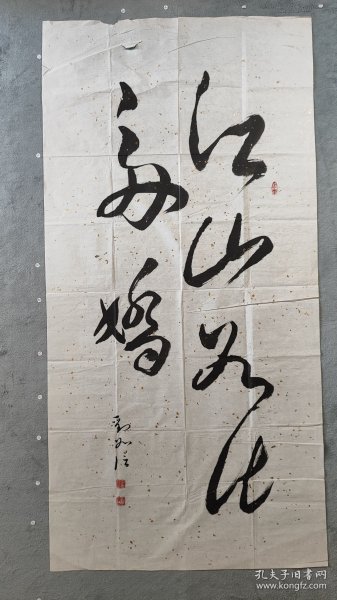 江山如此
多嬌
孔夫子旧书网
www.kongfz.com